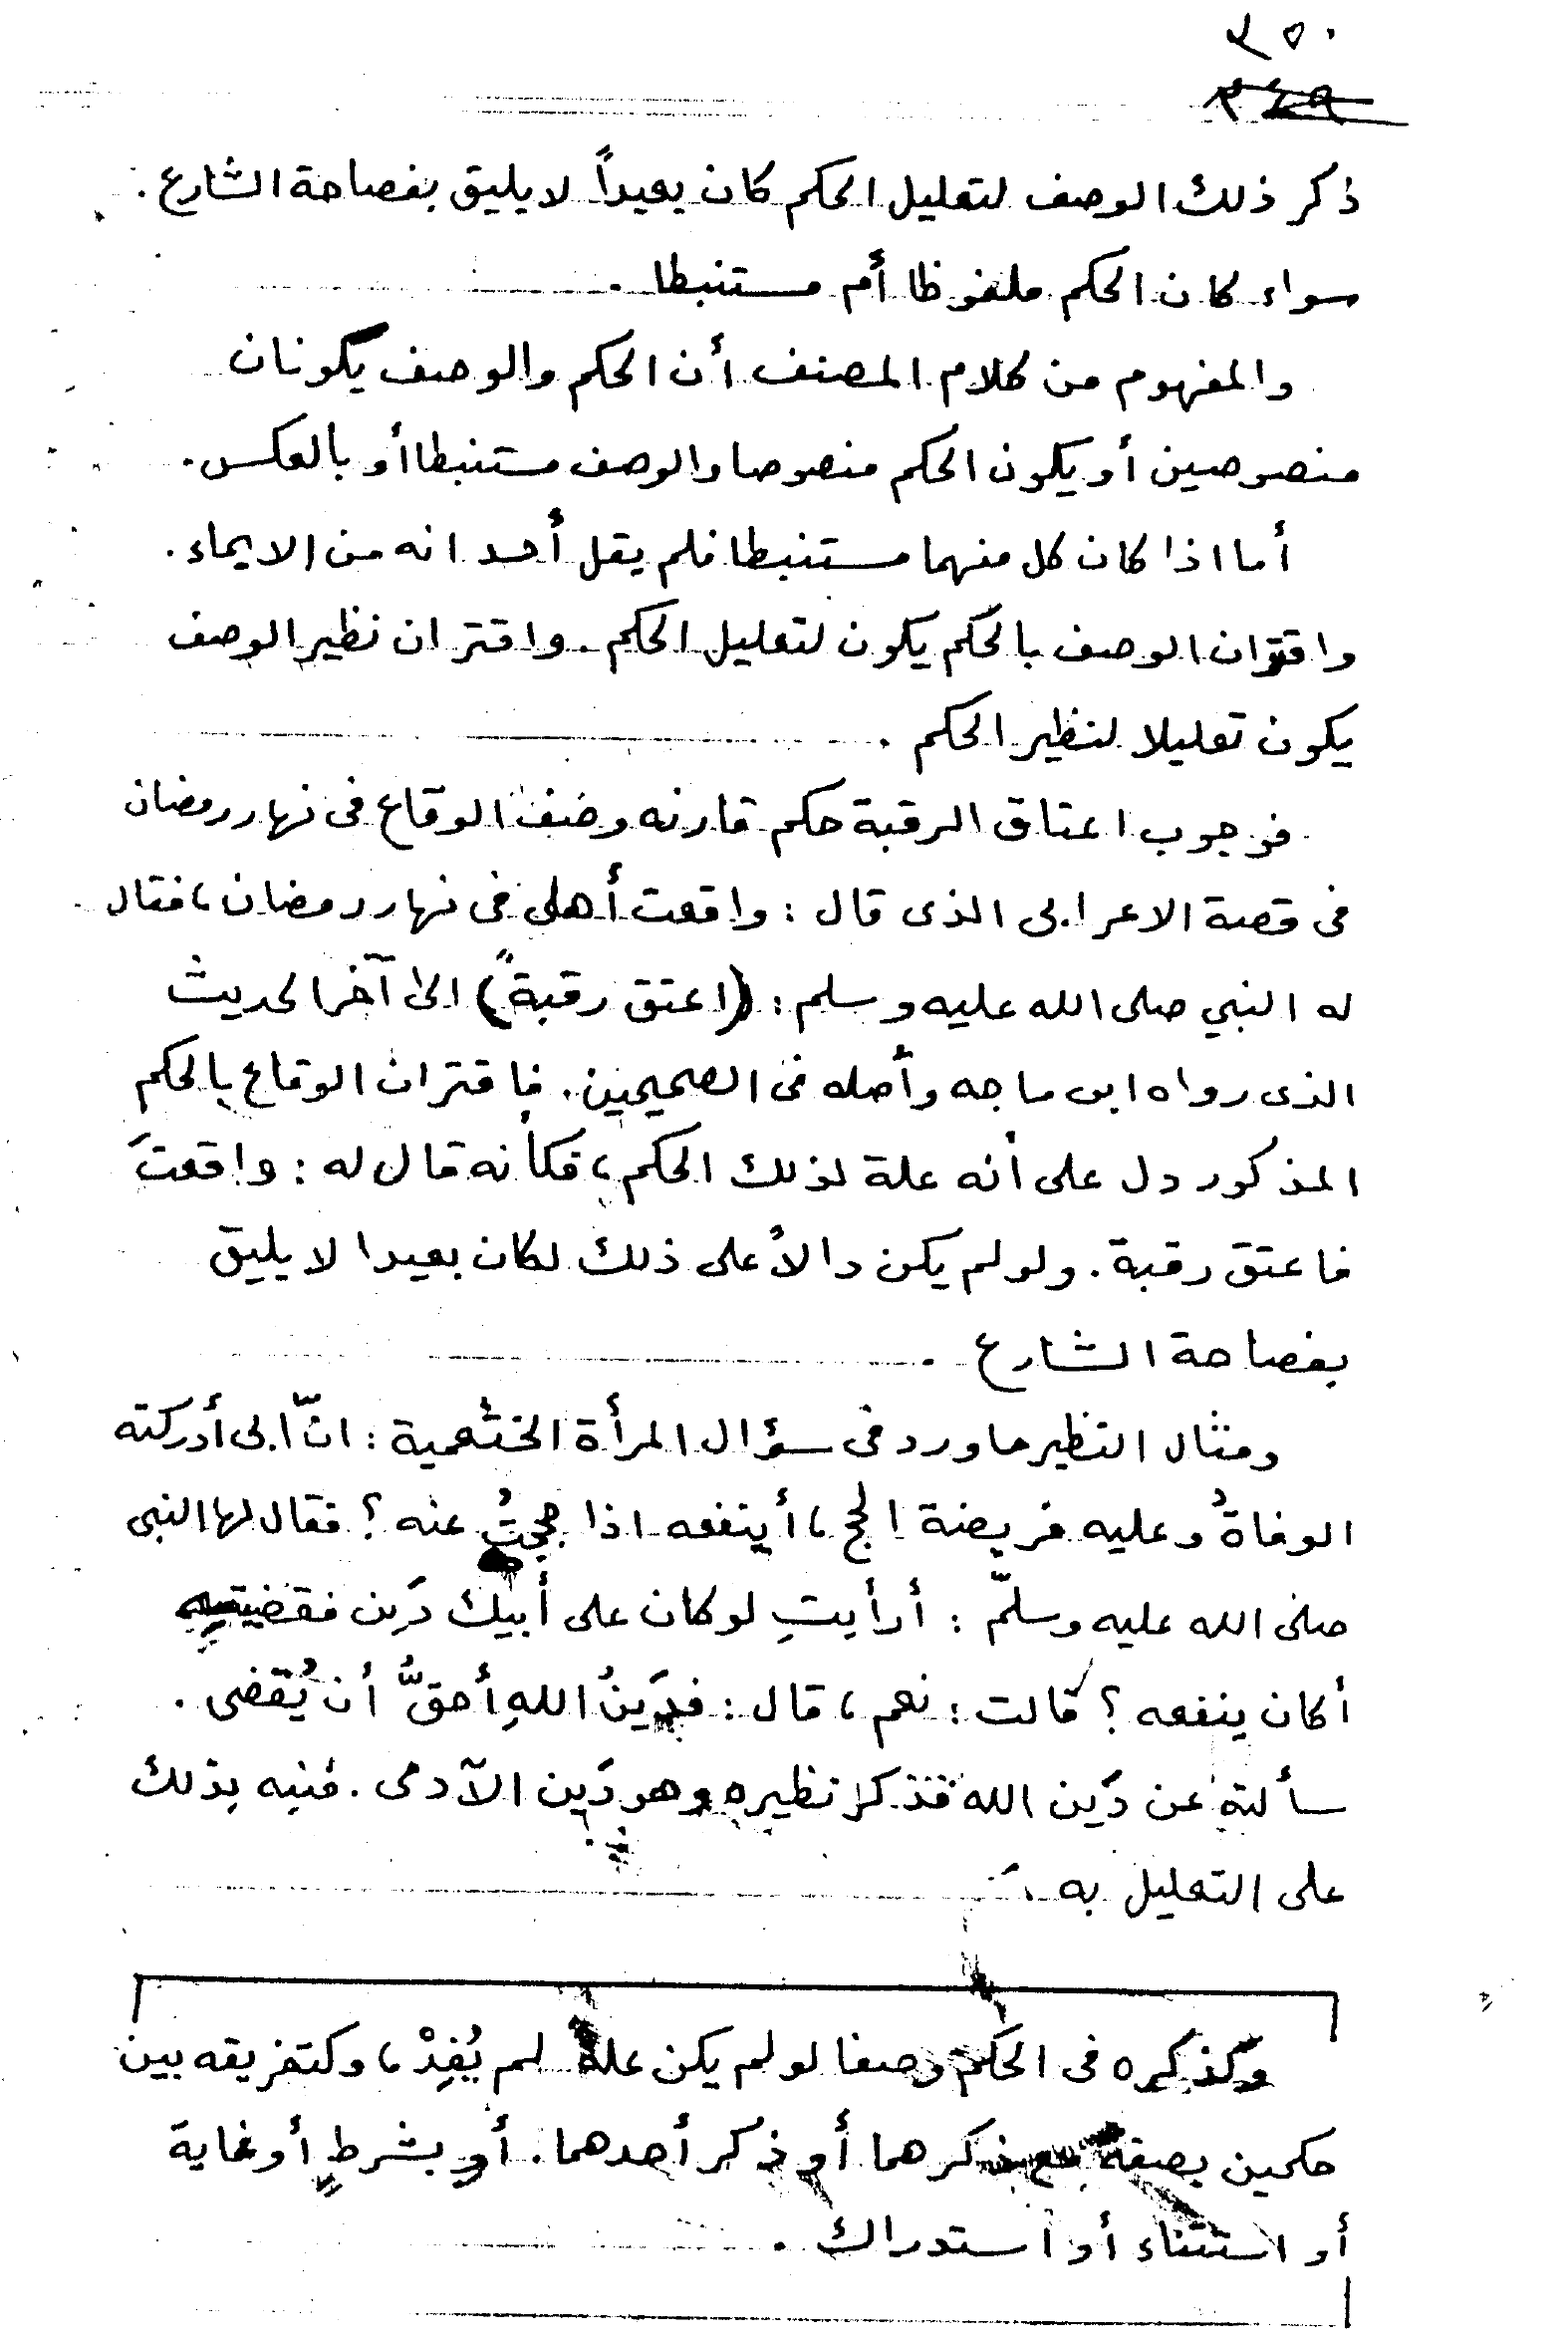 ٢٥٠
٢٤٩
ذكر ذلك الوصف لتعليل الحكم كان بعيداً لا يليق بفصاحة الشارع .
سواء كان الحكم ملفوظا أم مستنبطا .
والمفهوم من كلام المصنف أن الحكم والوصف يكونان
منصوصين أو يكون الحكم منصوصا والوصف مستنبطا أو بالعكس .
أما اذا كان كل منهما مستنبطا فلم يقل أحد انه من الايماء .
واقتران الوصف بالحكم يكون لتعليل الحكم . واقتران نظير الوصف
يكون تعليلا لنظير الحكم .
فوجوب اعتاق الرقبة حكم قارنه وصف الوقاع فى نهار رمضان
فى قصة الاعرابى الذى قال : واقعت أهلى فى نهار رمضان ، فقال
له النبي صلى الله عليه وسلم : (اعتق رقبةً) الى آخر الحديث
الذى رواه ابن ماجه وأصله فى الصحيحين . فاقتران الوقاع بالحكم
المذكور دل على أنه علة لذلك الحكم ، فكأنه قال له : واقعتَ
فاعتق رقبة . ولو لم يكن دالاً على ذلك لكان بعيدا لا يليق
بفصاحة الشارع .
ومثال النظير ما ورد فى سؤال المرأة الخثعمية : انّ ابى أدركته
الوفاةُ وعليه فريضة الحج ، أينفعه اذا حججتُ عنه ؟ فقال لها النبى
صلى الله عليه وسلّم : أرأيتِ لو كان على أبيك دَين فقضيتِيه
أكان ينفعه ؟ قالت : نعم ، قال : فدَينُ اللهِ أحقُّ أن يُقضى .
سألته عن دَين الله فذكر نظيره وهو دَين الآدمى . فنبه بذلك
على التعليل به .
وكذكره فى الحكم وصفا لو لم يكن علة لم يُفِدْ ، وكتفريقه بين
حكمين بصفة مع ذكرهما أو ذكر أحدهما . أو بشرطٍ أو غاية
أو استثناء أو استدراك .